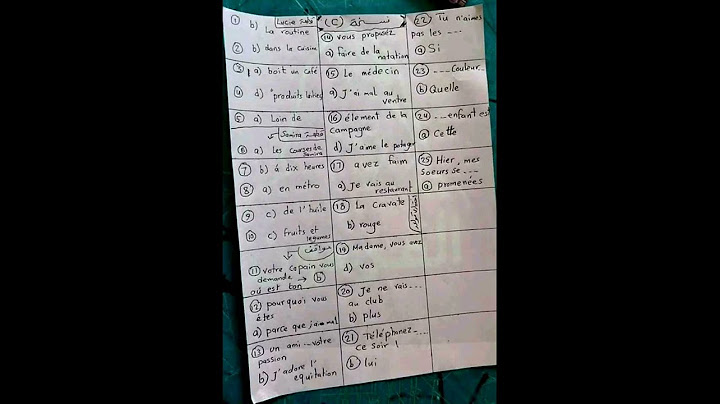 ① b) Lucie قطعة
La routine
② b) dans la cuisine
③ a) boit un café
④ d) produits laitiers
⑤ a) Loin de
Samira قطعة
⑥ a) Les courses de Samira
⑦ b) à dix heures
⑧ a) en métro
⑨ c) de l'huile
⑩ c) fruits et
légumes
مواقف
⑪ votre copain vous
demande → ⓑ
où est ton..
⑫ pourquoi vous
êtes
a) parce que j'ai mal
⑬ un ami ... votre
passion
b) J'adore l'
equitation
نسخة (C)
⑭ vous proposez
a) faire de la
natation
⑮ Le médecin
a) J'ai mal au
ventre
⑯ élement de la
campagne
d) J'aime le potager
⑰ avez faim
a) Je vais au
restaurant
⑱ La cravate
b) rouge
⑲ Madame, vous avez
d) vos
⑳ Je ne vais ...
au club
b) plus
㉑ Téléphonez ...
ce soir !
ⓑ lui
㉒ Tu n'aimes
pas les ...
ⓐ Si
㉓ ... Couleur..
ⓑ Quelle
㉔ ... enfant est
ⓐ Cette
㉕ Hier, mes
soeurs se ...
ⓐ promenées